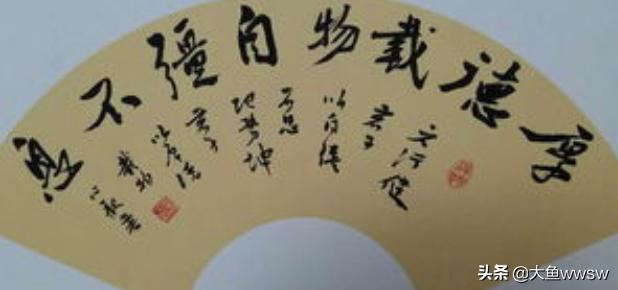 厚德載物自彊不息
天行健
君子
以自强
不息
地势坤
君子
以厚德
載物
头条 @大鱼wwsw